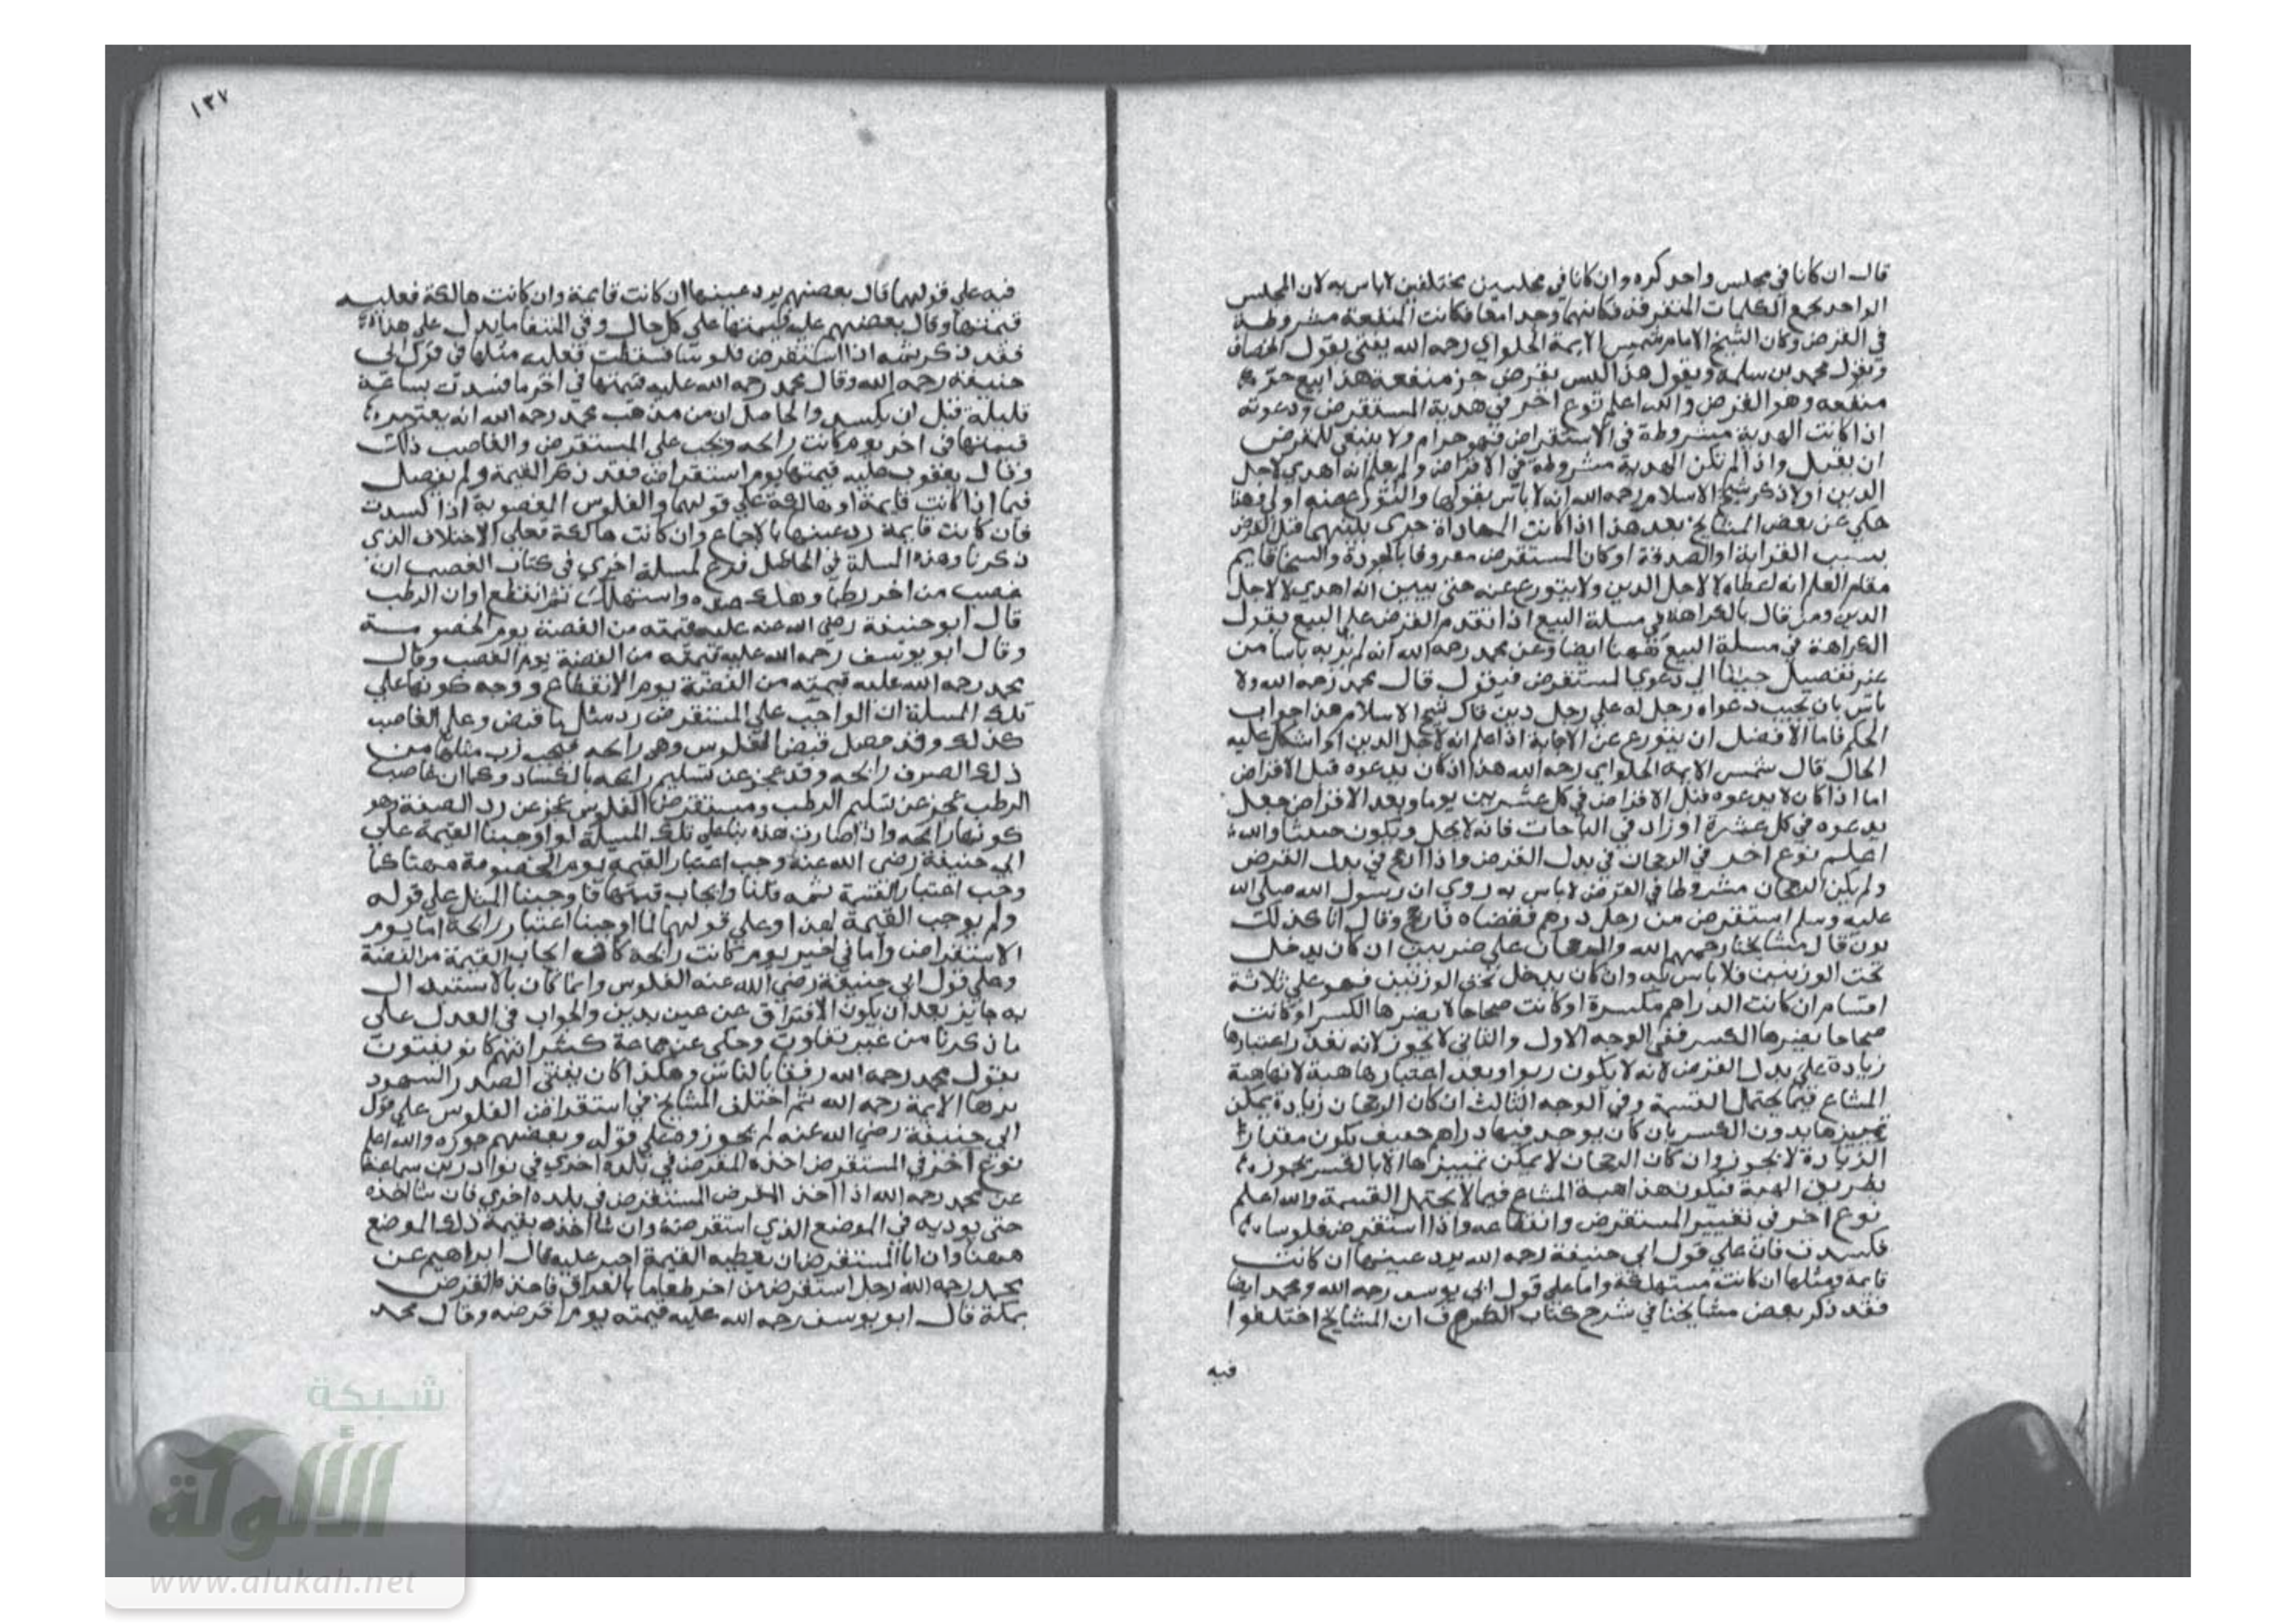 قال ان كانا في مجلس واحد كره وان كانا في مجلسين مختلفين لا باس به لان المجلس
الواحد يجمع الكلمات المتفرقة فكانهما وجدا معا فكانت المنفعة مشروطة
في القرض وكان الشيخ الامام شمس الايمة الحلواي رحمه الله يفتي بقول الخصاف
وبقول محمد بن سلمة ويقول هذا ليس بقرض جر منفعة هذا بيع جر
منفعه وهو القرض والله اعلم نوع اخر في هدية المستقرض ودعوته
اذا كانت الهدية مشروطة في الاستقراض فهو حرام ولا ينبغي للمقرض
ان يقبل واذا لم تكن الهدية مشروطة في الاقراض ولم يعلم انه اهدي لاجل
الدين اولا ذكر شيخ الاسلام رحمه الله انه لا باس بقبولها والتورع عنه اولي وهذا
حكي عن بعض المشايخ بعد هذا اذا كانت المهاداة جرى بينهما قبل القرض
بسبب القرابة او الصدقة او كان المستقرض معروفا بالجودة والسخا قايم
مقام العلم انه اعطاه لا لاجل الدين ولا يتورع عنه حتى يبين انه اهدي لا لاجل
الدين ومن قال بالكراهة في مسلة البيع اذا تقدم القرض على البيع يقول
الكراهة في مسلة البيع ههنا ايضا وعن محمد رحمه الله انه لم ير به باسا من
غير تفصيل جينا الي دعوي المستقرض فيقول قال محمد رحمه الله ولا
باس بان يجيب دعواه رجل له علي رجل دين قال شيخ الاسلام هذا جواب
الحكم فاما الافضل ان يتورع عن الاجابة اذا علم انه لاجل الدين او اشكل عليه
الحال قال شمس الايمة الحلواي رحمه الله هذا اذا كان يدعوه قبل الاقراض
اما اذا كان لا يدعوه قبل الاقراض في كل عشرين يوما وبعد الاقراض جعل
يدعوه في كل عشرة او زاد في الباحات فانه لا يحل ويكون خبيثا والله
اعلم نوع اخر في الرجحان في بدل القرض واذا ارجح في بدل القرض
ولم يكن الرجحان مشروطا في القرض لا باس به روي ان رسول الله صلى الله
عليه وسلم استقرض من رجل درهم فقضاه فارجح وقال انا كذلك
نون قال مشايخنا رحمهم الله والرجحان علي ضربين ان كان يدخل
تحت الوزنين فلا باس به وان كان يدخل تحت الوزنين فهو علي ثلاثة
اقسام ان كانت الدراهم مكسرة او كانت صحاحا لا يضرها الكسر او كانت
صحاحا يضرها الكسر ففي الوجه الاول والثاني لا يجوز لانه تعذر اعتبارها
زيادة علي بدل القرض لانه لا يكون ربوا وبعد اعتبارها هبة لانها هبة
المشاع فيما يحتمل القسمة وفي الوجه الثالث ان كان الرجحان زيادة يمكن
تمييزها بدون الكسر بان كان يوجد فيها دراهم خفيف يكون مقدار
الزيادة لا يجوز وان كان الرجحان لا يمكن تمييزها الا بالكسر يجوز
بطريق الهبة فيكون هذا هبة المشاع فيما لا يحتمل القسمة والله اعلم
نوع اخر في تغيير المستقرض وانقطاعه واذا استقرض فلوسا
فكسدت فان علي قول ابي حنيفة رحمه الله يرد عينها ان كانت
قايمة ومثلها ان كانت مستهلكة واما علي قول ابي يوسف رحمه الله ومحمد ايضا
فقد ذكر بعض مشايخنا في شرح كتاب الصرف ان المشايخ اختلفوا
فيه
١٣٧
فيه علي قولهما قال بعضهم يرد عينها ان كانت قايمة وان كانت هالكة فعليه
قيمتها وقال بعضهم عليه قيمتها علي كل حال وفي المنتقا ما يدل علي هذا
فقد ذكر ثمه اذا استقرض فلوسا فسقطت فعليه مثلها في قول ابي
حنيفة رحمه الله وقال محمد رحمه الله عليه قيمتها في اخر ما فسدت بساعة
قليلة قبل ان يكسد والحاصل ان من مذهب محمد رحمه الله انه يعتبر
قيمتها في اخر يوم كانت رايحه ويجب علي المستقرض والغاصب ذلك
وقال يعقوب عليه قيمتها يوم استقراض فقد ذكر القيمة ولم يفصل
فيما اذا كانت قايمة او هالكة علي قولهما والفلوس المغصوبة اذا كسدت
فان كانت قايمة رد عينها بالاجماع وان كانت هالكة فعلي الاختلاف الذي
ذكرنا وهذه المسلة في الحاصل فرع لمسلة اخري في كتاب الغصب ان
غصب من اخر رطبا وهلك عنده واستهلك ثم انقطع اوان الرطب
قال ابو حنيفة رضي الله عنه عليه قيمته من الفضة يوم الخصومة
وقال ابو يوسف رحمه الله عليه قيمته من الفضة يوم الغصب وقال
محمد رحمه الله عليه قيمته من الفضة يوم الانقطاع ووجه كونها علي
تلك المسلة ان الواجب علي المستقرض رد مثل ما قبض وعلي الغاصب
كذلك وقد حصل قبض الفلوس وهي رايحه فيجب رد مثلها من
ذلك الصرف رايحه وقد عجز عن تسليم رايحه بالكساد وكما ان غاصب
الرطب عجز عن تسليم الرطب ومستقرض الفلوس عجز عن رد الصفة وهو
كونها رايحه واذا صارت هذه بنا علي تلك المسلة لو اوجبنا القيمة علي
ابي حنيفة رضي الله عنه وجب اعتبار القيمة يوم الخصومة ههنا كما
وجب اعتبار القيمة ثمه قلنا وايجاب قيمتها فاوجبنا المثل علي قوله
ولم يوجب القيمة لهذا وعلي قولهما لما اوجبنا اعتبار رايحة اما يوم
الاستقراض واما في اخير يوم كانت رايحة كان ايجاب القيمة من الفضة
وعلي قول ابي حنيفة رضي الله عنه الفلوس وانما كان بالاستبدال
به جايز بعد ان يكون الافتراق عن عين بدين والجواب في العدل علي
ما ذكرنا من غير تفاوت وحكي عن جماعة كثير انهم كانو يفتون
بقول محمد رحمه الله رفقا بالناس وهكذا كان يفتي الصدر السهود
برها الايمة رحمه الله ثم اختلف المشايخ في استقراض الفلوس علي قول
ابي حنيفة رضي الله عنه لم يجوز وعلي قوله وبعضهم جوزه والله اعلم
نوع اخر في المستقرض اخذه المقرض في بلدة اخري في نوادر بن سماعة
عن محمد رحمه الله اذا اخذ المقرض المستقرض في بلده اخري فان شا اخذه
حتى يوديه في الموضع الذي استقرضه وان شا اخذه بقيمة ذلك الموضع
ههنا وان ابا المستقرض ان يعطيه القيمة اجبر عليه قال ابراهيم عن
محمد رحمه الله رجل استقرض من اخر طعاما بالعراق فاخذه المقرض
بمكة قال ابو يوسف رحمه الله عليه قيمته يوم اقرضه وقال محمد
شبكة
الألوكة
www.alukah.net